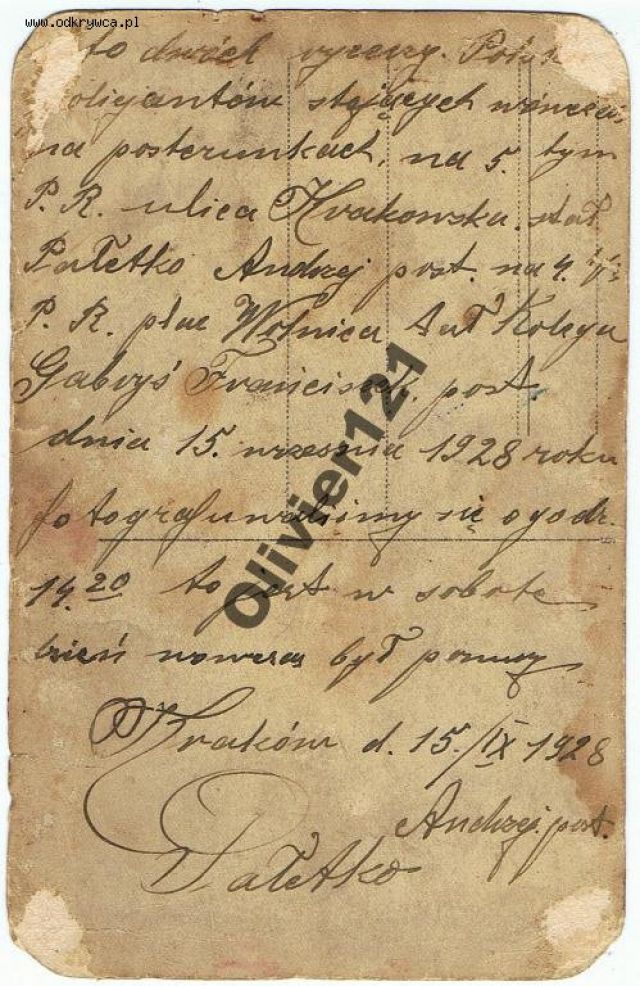 www.odkrywca.pl
to dwóch
stojących
na posterunkach, na 5. tym
P. R. ulica Krakowska stał
Pałetko Andrzej post. na 4.
P. R. plac Wolnica stał Kolega
Gabryś Franciszek post.
dnia 15. września 1928 roku
fotografuwaliśmy się o godz.
14.20 to jest w sobote
był
Kraków d. 15./IX 1928
Andrzej post.
Pałetko
Olivier121